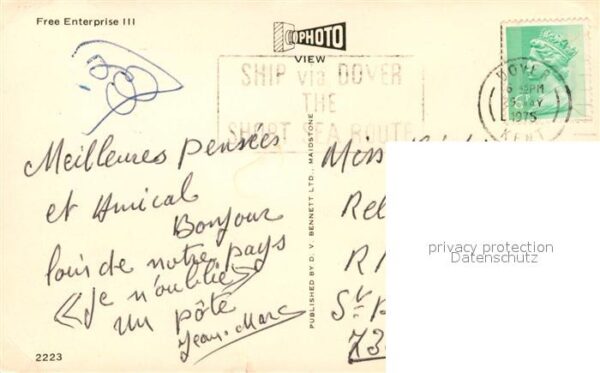 Free Enterprise III
PHOTO
VIEW
SHIP via DOVER
THE
SHORT SEA ROUTE
DOVER
6 PM
MAY
1975
KENT
Meilleures pensées
et Amical
Bonjour
loin de notre pays
« Je n'oublie »
un pôte
Jean-Marc
PUBLISHED BY D. V. BENNETT LTD., MAIDSTONE
privacy protection
Datenschutz
2223